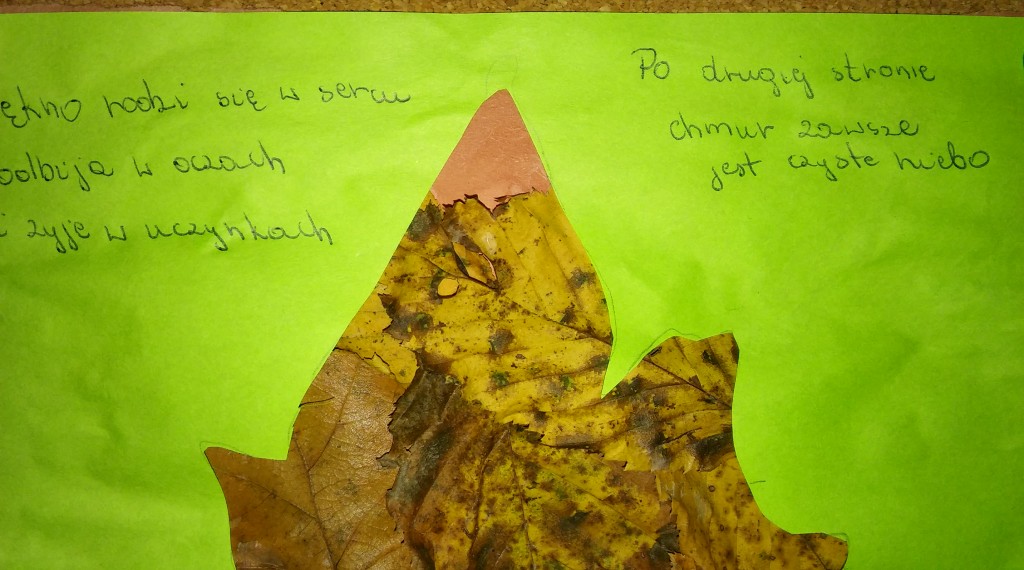 ękno rodzi się w sercu
odbija w oczach
i żyje w uczynkach
Po drugiej stronie
chmur zawsze
jest czyste niebo